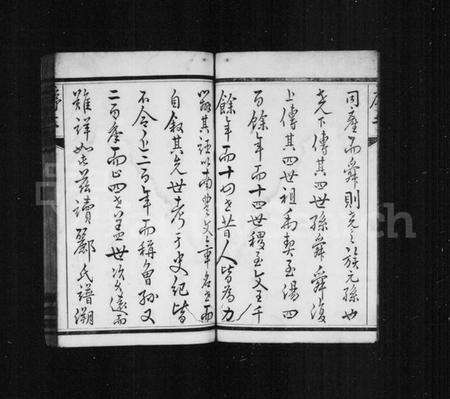 同塵而舜則堯之族元孫也
堯下傳其四世孫舜舜復
上傳其四世祖禹契至湯四
百餘年而十四世稷至文王千
餘年而十四世昔人皆為力
其誣以南豐文章名世而
自叙其先世考于史紀皆
不合上二百年而稱曾孫又
二百年而四世蓋世次久遠而
難詳如此茲讀鄺氏譜溯